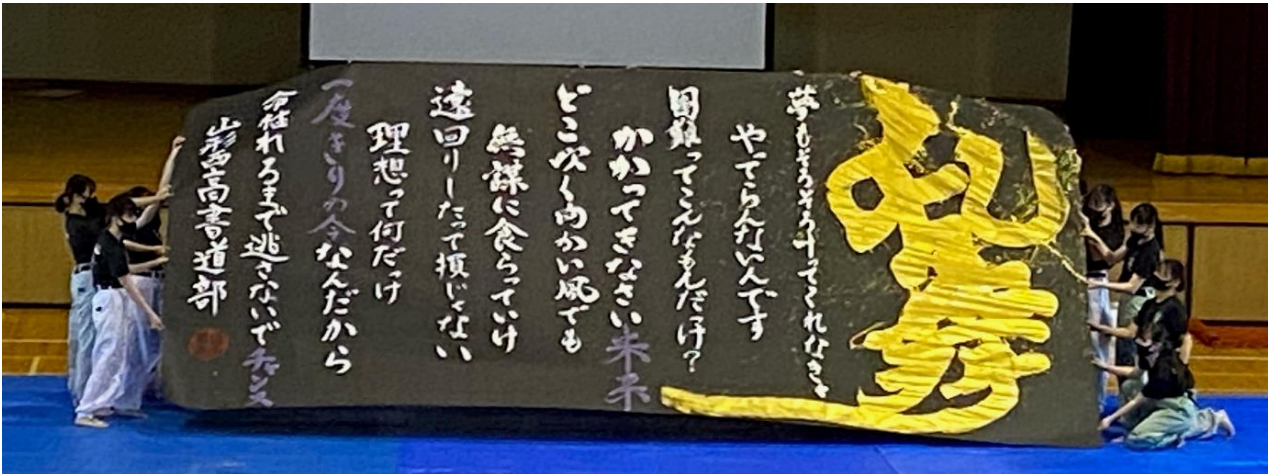 夢もそろそろ叶ってくれなきゃ
やってらんないんです
困難ってこんなもんだっけ?
かかってきなさい未来
どこ吹く向かい風でも
無謀に食らっていけ
遠回りしたって損じゃない
理想って何だっけ
一度きりの今なんだから
命枯れるまで逃さないでチャンス
山形西高書道部